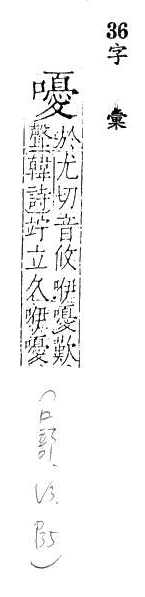 36 字彙
嚘
於尤切音攸咿嚘歎
聲韓詩竚立久咿嚘
(口部, V3, P35)